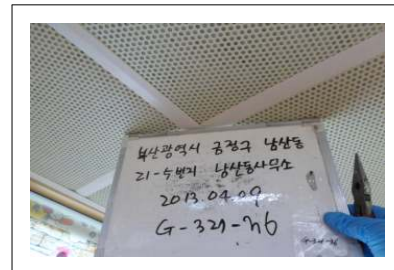 부산광역시 금정구 남산동
21-5번지 남산동사무소
2013.04.09
G-321-h6